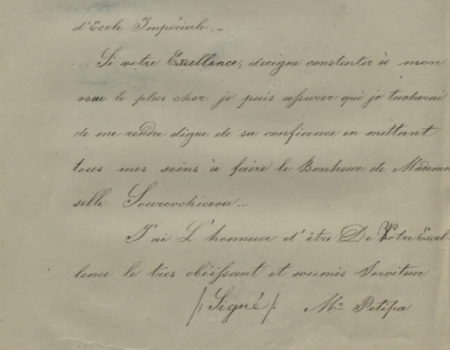 d'Ecole Impériale.-
Si votre Excellence, daigne constentir à mon
voeu le plus cher je puis assurer qui je tacherai
de me rendre digne de sa confience en mettant
tous mes soins à faire le Bonheur de Mademoi
selle Sourovchicova.-
J'ai L'honneur d'être De Votre Excel-
lence le très obéissant et soumis Serviteur
/: Signé /: Mrs Petipa